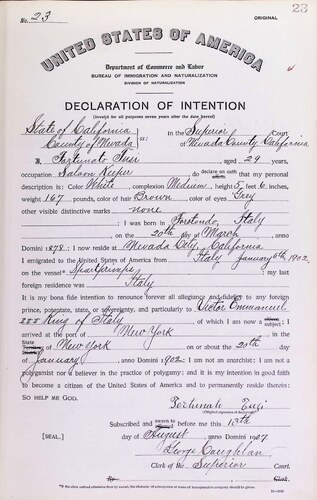 23
No. 23
ORIGINAL
UNITED STATES OF AMERICA
Department of Commerce and Labor
BUREAU OF IMMIGRATION AND NATURALIZATION
DIVISION OF NATURALIZATION
DECLARATION OF INTENTION
(Invalid for all purposes seven years after the date hereof)
State of California
County of Nevada ss: In the Superior Court
of Nevada County, California
I, Fortunato, aged 29 years,
occupation Saloon Keeper, do declare on oath that my personal
description is: Color White, complexion Medium, height 5 feet 6 inches,
weight 167 pounds, color of hair Brown, color of eyes Grey
other visible distinctive marks none
I was born in, Italy
, on the 20th day of March, anno
Domini 1878; I now reside at Nevada City, California
I emigrated to the United States of America from Italy January 6th 1902
on the vessel; my last
foreign residence was Italy
It is my bona fide intention to renounce forever all allegiance and fidelity to any foreign
prince, potentate, state, or sovereignty, and particularly to Victor Emmanuel
King of Italy, of which I am now a subject; I
arrived at the port of New York, in the
State of New York on or about the 20th day
of January, anno Domini 1902; I am not an anarchist; I am not a
polygamist nor a believer in the practice of polygamy; and it is my intention in good faith
to become a citizen of the United States of America and to permanently reside therein:
SO HELP ME GOD.
(Original signature of declarant)
Subscribed and sworn to before me this 13th
[SEAL.] day of August, anno Domini 1907
George Coughlan
Clerk of the Superior Court.